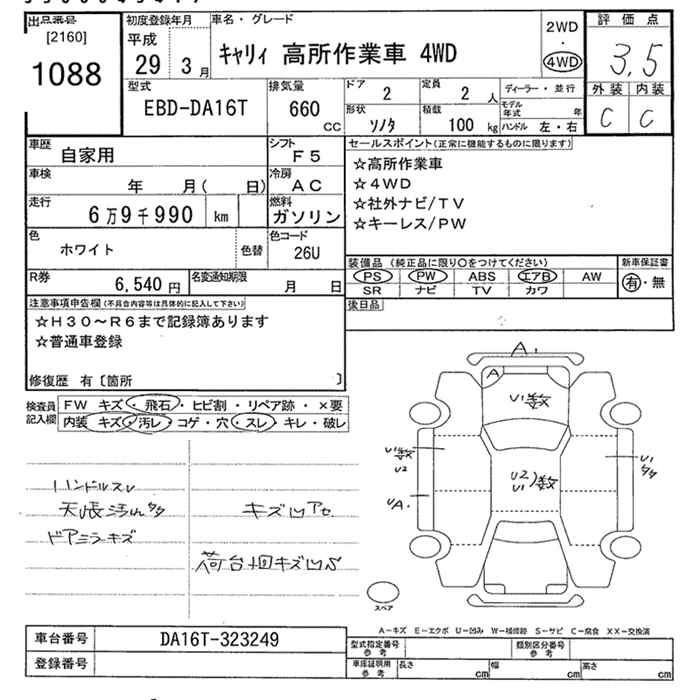 出品番号
[2160]
1088
初度登録年月
平成
29年 3月
車名・グレード
キャリィ 高所作業車 4WD
2WD
・
4WD
評価点
3.5
外装 内装
C C
型式
EBD-DA16T
排気量
660
CC
ドア
2
定員
2 人
形状
ソノタ
積載
100 kg
ディーラー・並行
モデル年式 年
ハンドル 左・右
車歴
自家用
シフト
F5
車検
年 月( 日)
冷房
AC
走行
6万9千990 km
燃料
ガソリン
色
ホワイト
色替
色コード
26U
R券
6,540円
名変通知期限
月 日
セールスポイント(正常に機能するものに限ります)
☆高所作業車
☆4WD
☆社外ナビ/TV
☆キーレス/PW
装備品(純正品に限り〇をつけてください)
PS PW ABS エアB AW
SR ナビ TV カワ
新車保証書
有・無
後日品
注意事項申告欄(不具合内容等は具体的に記入して下さい)
☆H30～R6まで記録簿あります
☆普通車登録
修復歴 有〔箇所 〕
検査員記入欄
FW キズ・飛石・ヒビ割・リペア跡・×要
内装 キズ・汚レ・コゲ・穴・スレ・キレ・破レ
ハンドルスレ
ドアミラキズ
キズ凹アセ
A.
A
U1数
U1数
U2
U2
U1 数
U1
A.
スペア
A－キズ E－エクボ U－凹み W－補修跡 S－サビ C－腐食 XX－交換済
車台番号
DA16T-323249
登録番号
型式指定番号 参考
類別区分番号 参考
車庫証明用 参考
長さ cm
幅 cm
高さ cm